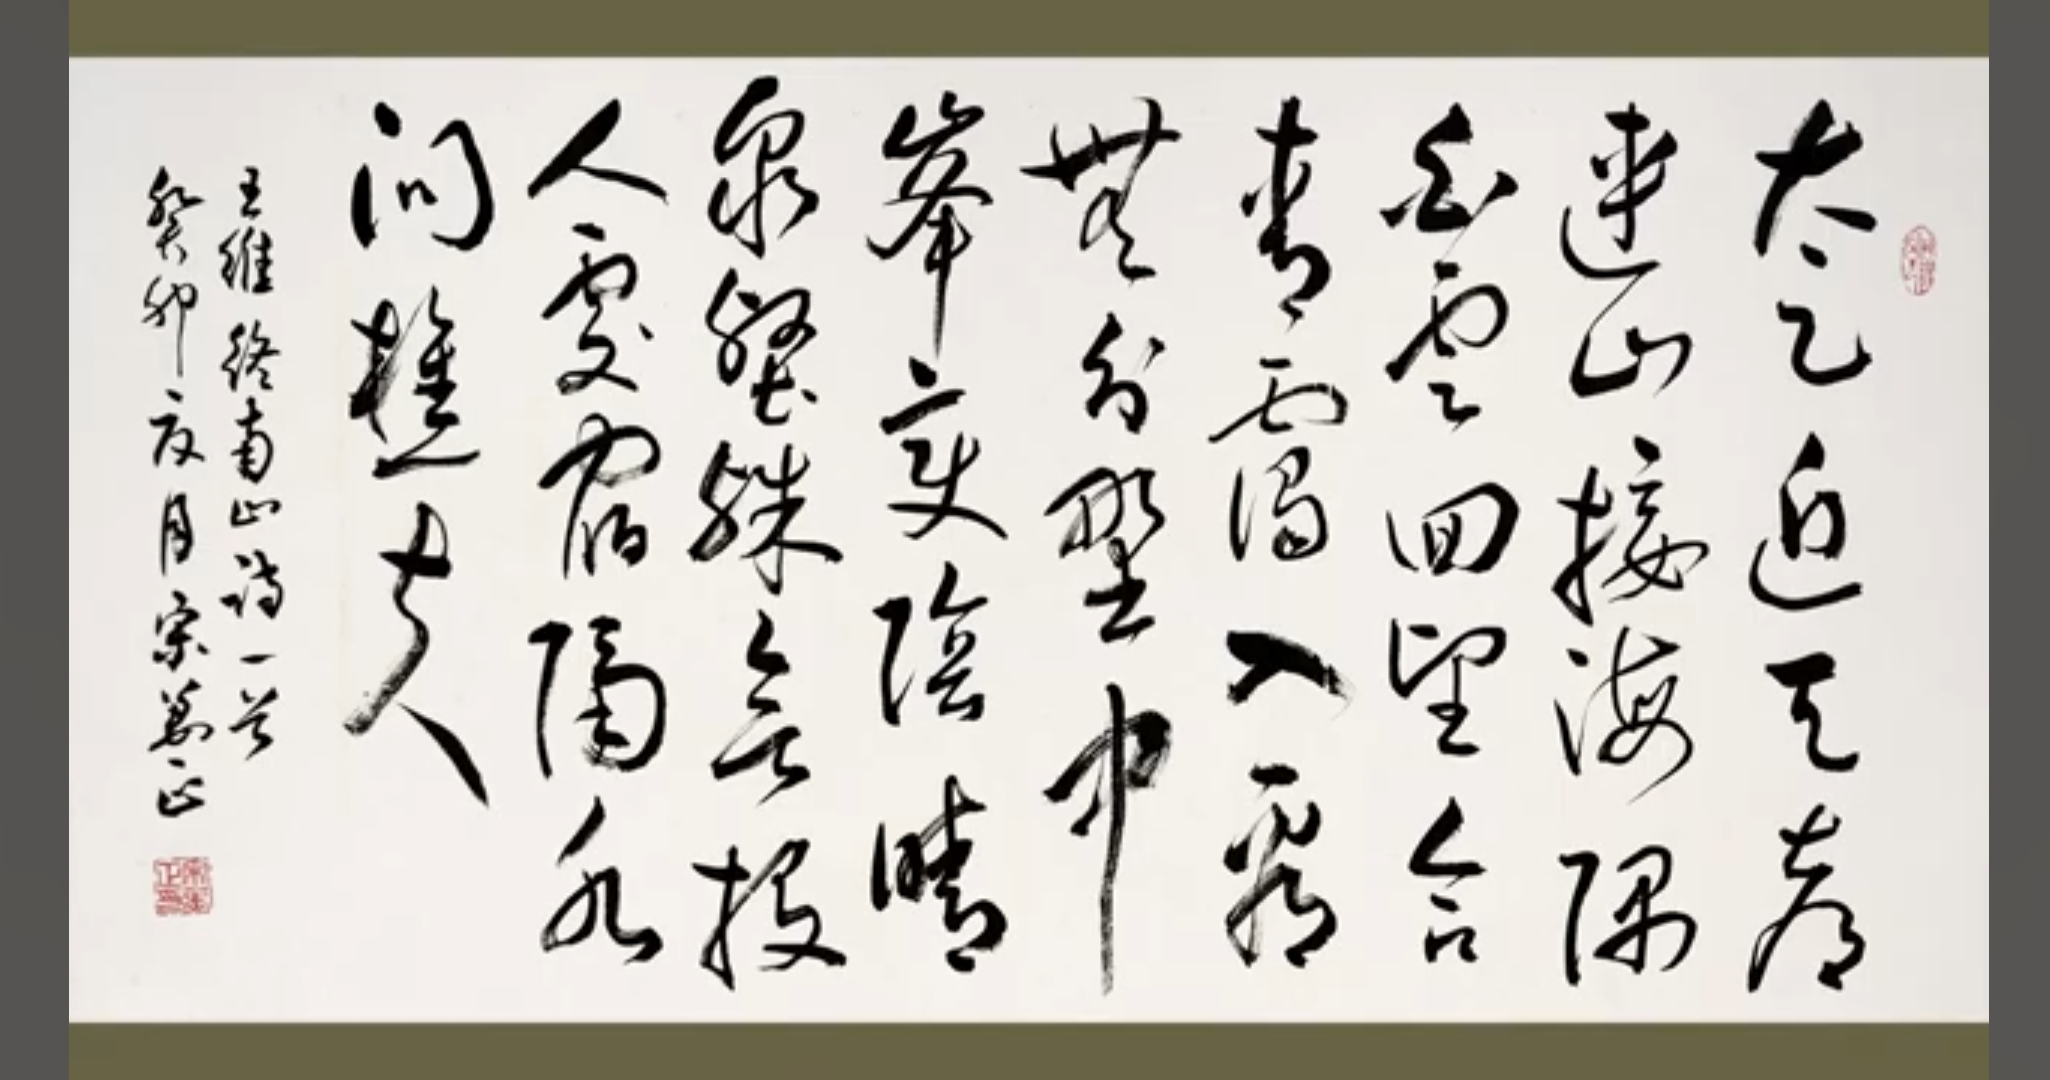 太乙近天都
連山接海隅
白雲回望合
青靄入看
無分野中
峯變陰晴
衆壑殊欲投
人處宿隔水
問樵夫
王維終南山詩一首
癸卯夏月宋萬正